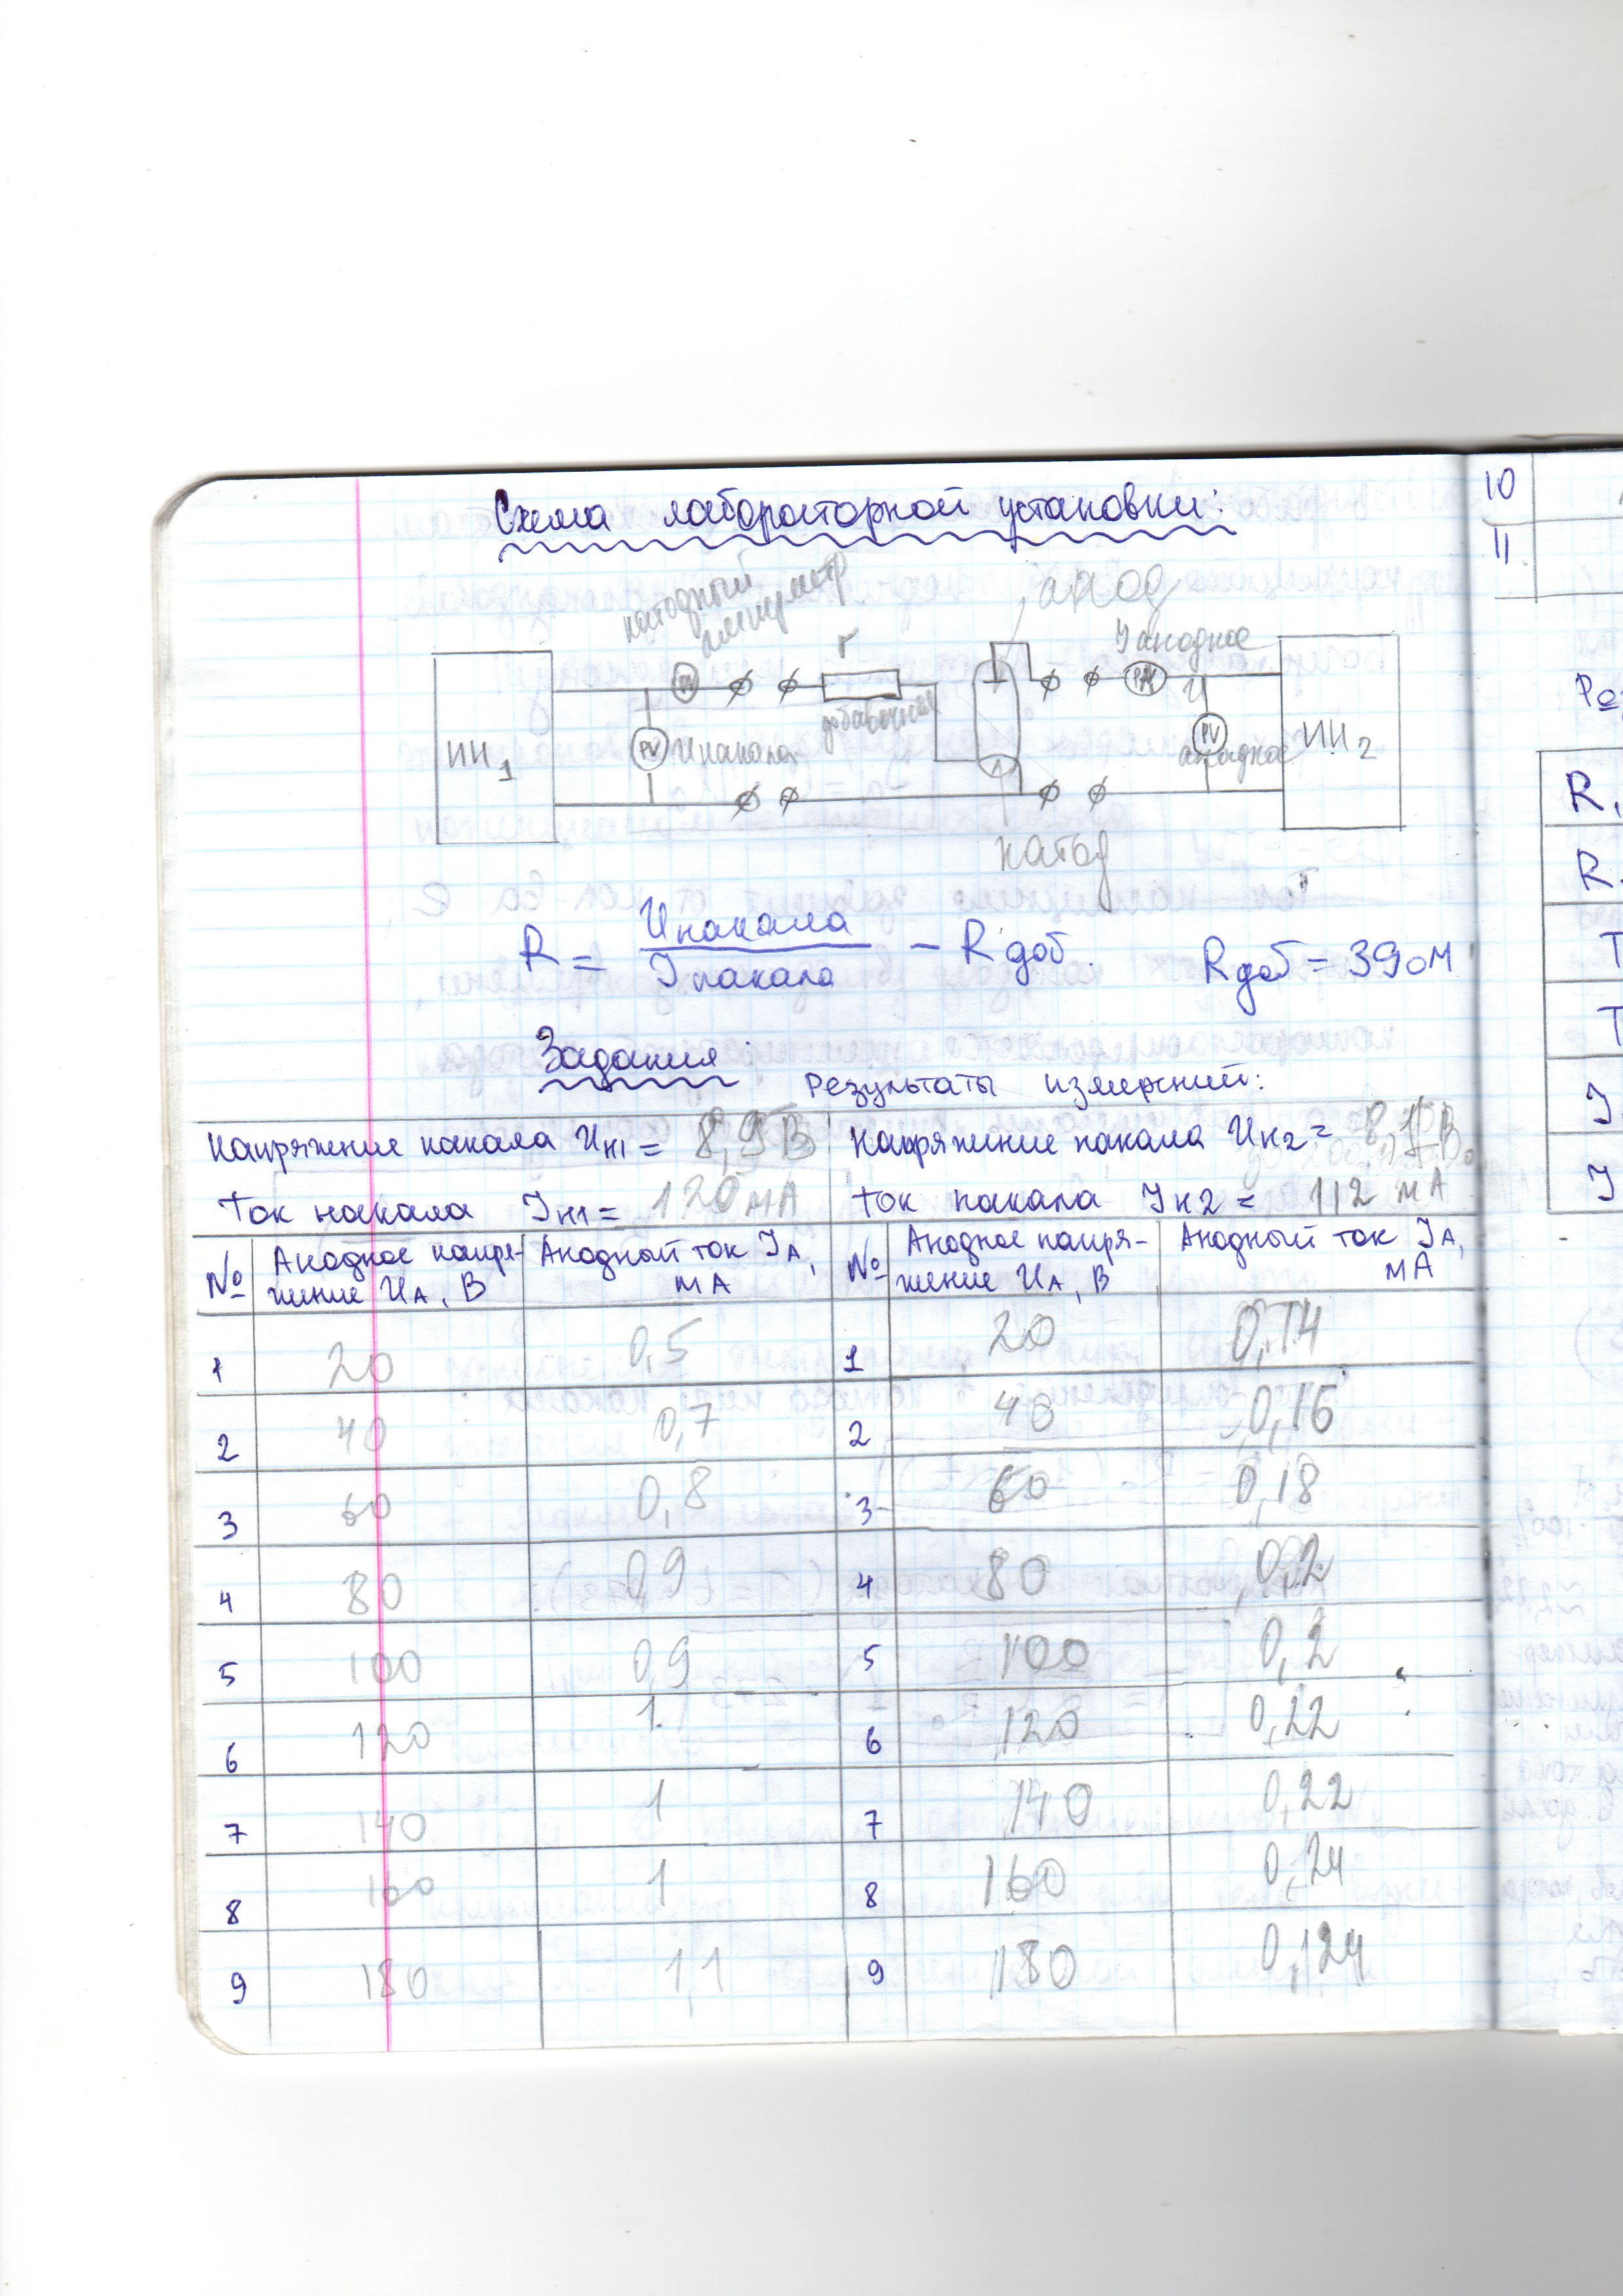 Схема лабораторной установки:
катодный
амперметр
анод
r
I анодное
PA
ИН1
PV
U накала
добавочное
U
PV
анодное
ИН2
катод
R = Uнакала / Iнакала − Rдоб. Rдоб = 39 Ом
Задания:
Результаты измерений:
Напряжение накала Uн1 = 8,9 В Напряжение накала Uн2 =
Ток накала Iн1 = 120 мА Ток накала Iн2 = 112 мА
№ Анодное напря- Анодный ток IА, № Анодное напря- Анодный ток IА,
жение UА, В мА жение UА, В мА
1 20 0,5 1 20 0,14
2 40 0,7 2 40 0,16
3 60 0,8 3 60 0,18
4 80 0,9 4 80 0,2
5 100 0,9 5 100 0,2
6 120 1 6 120 0,22
7 140 1 7 140 0,22
8 160 1 8 160 0,24
9 180 1,1 9 180 0,24
10
11
R
R
T
T
I
I